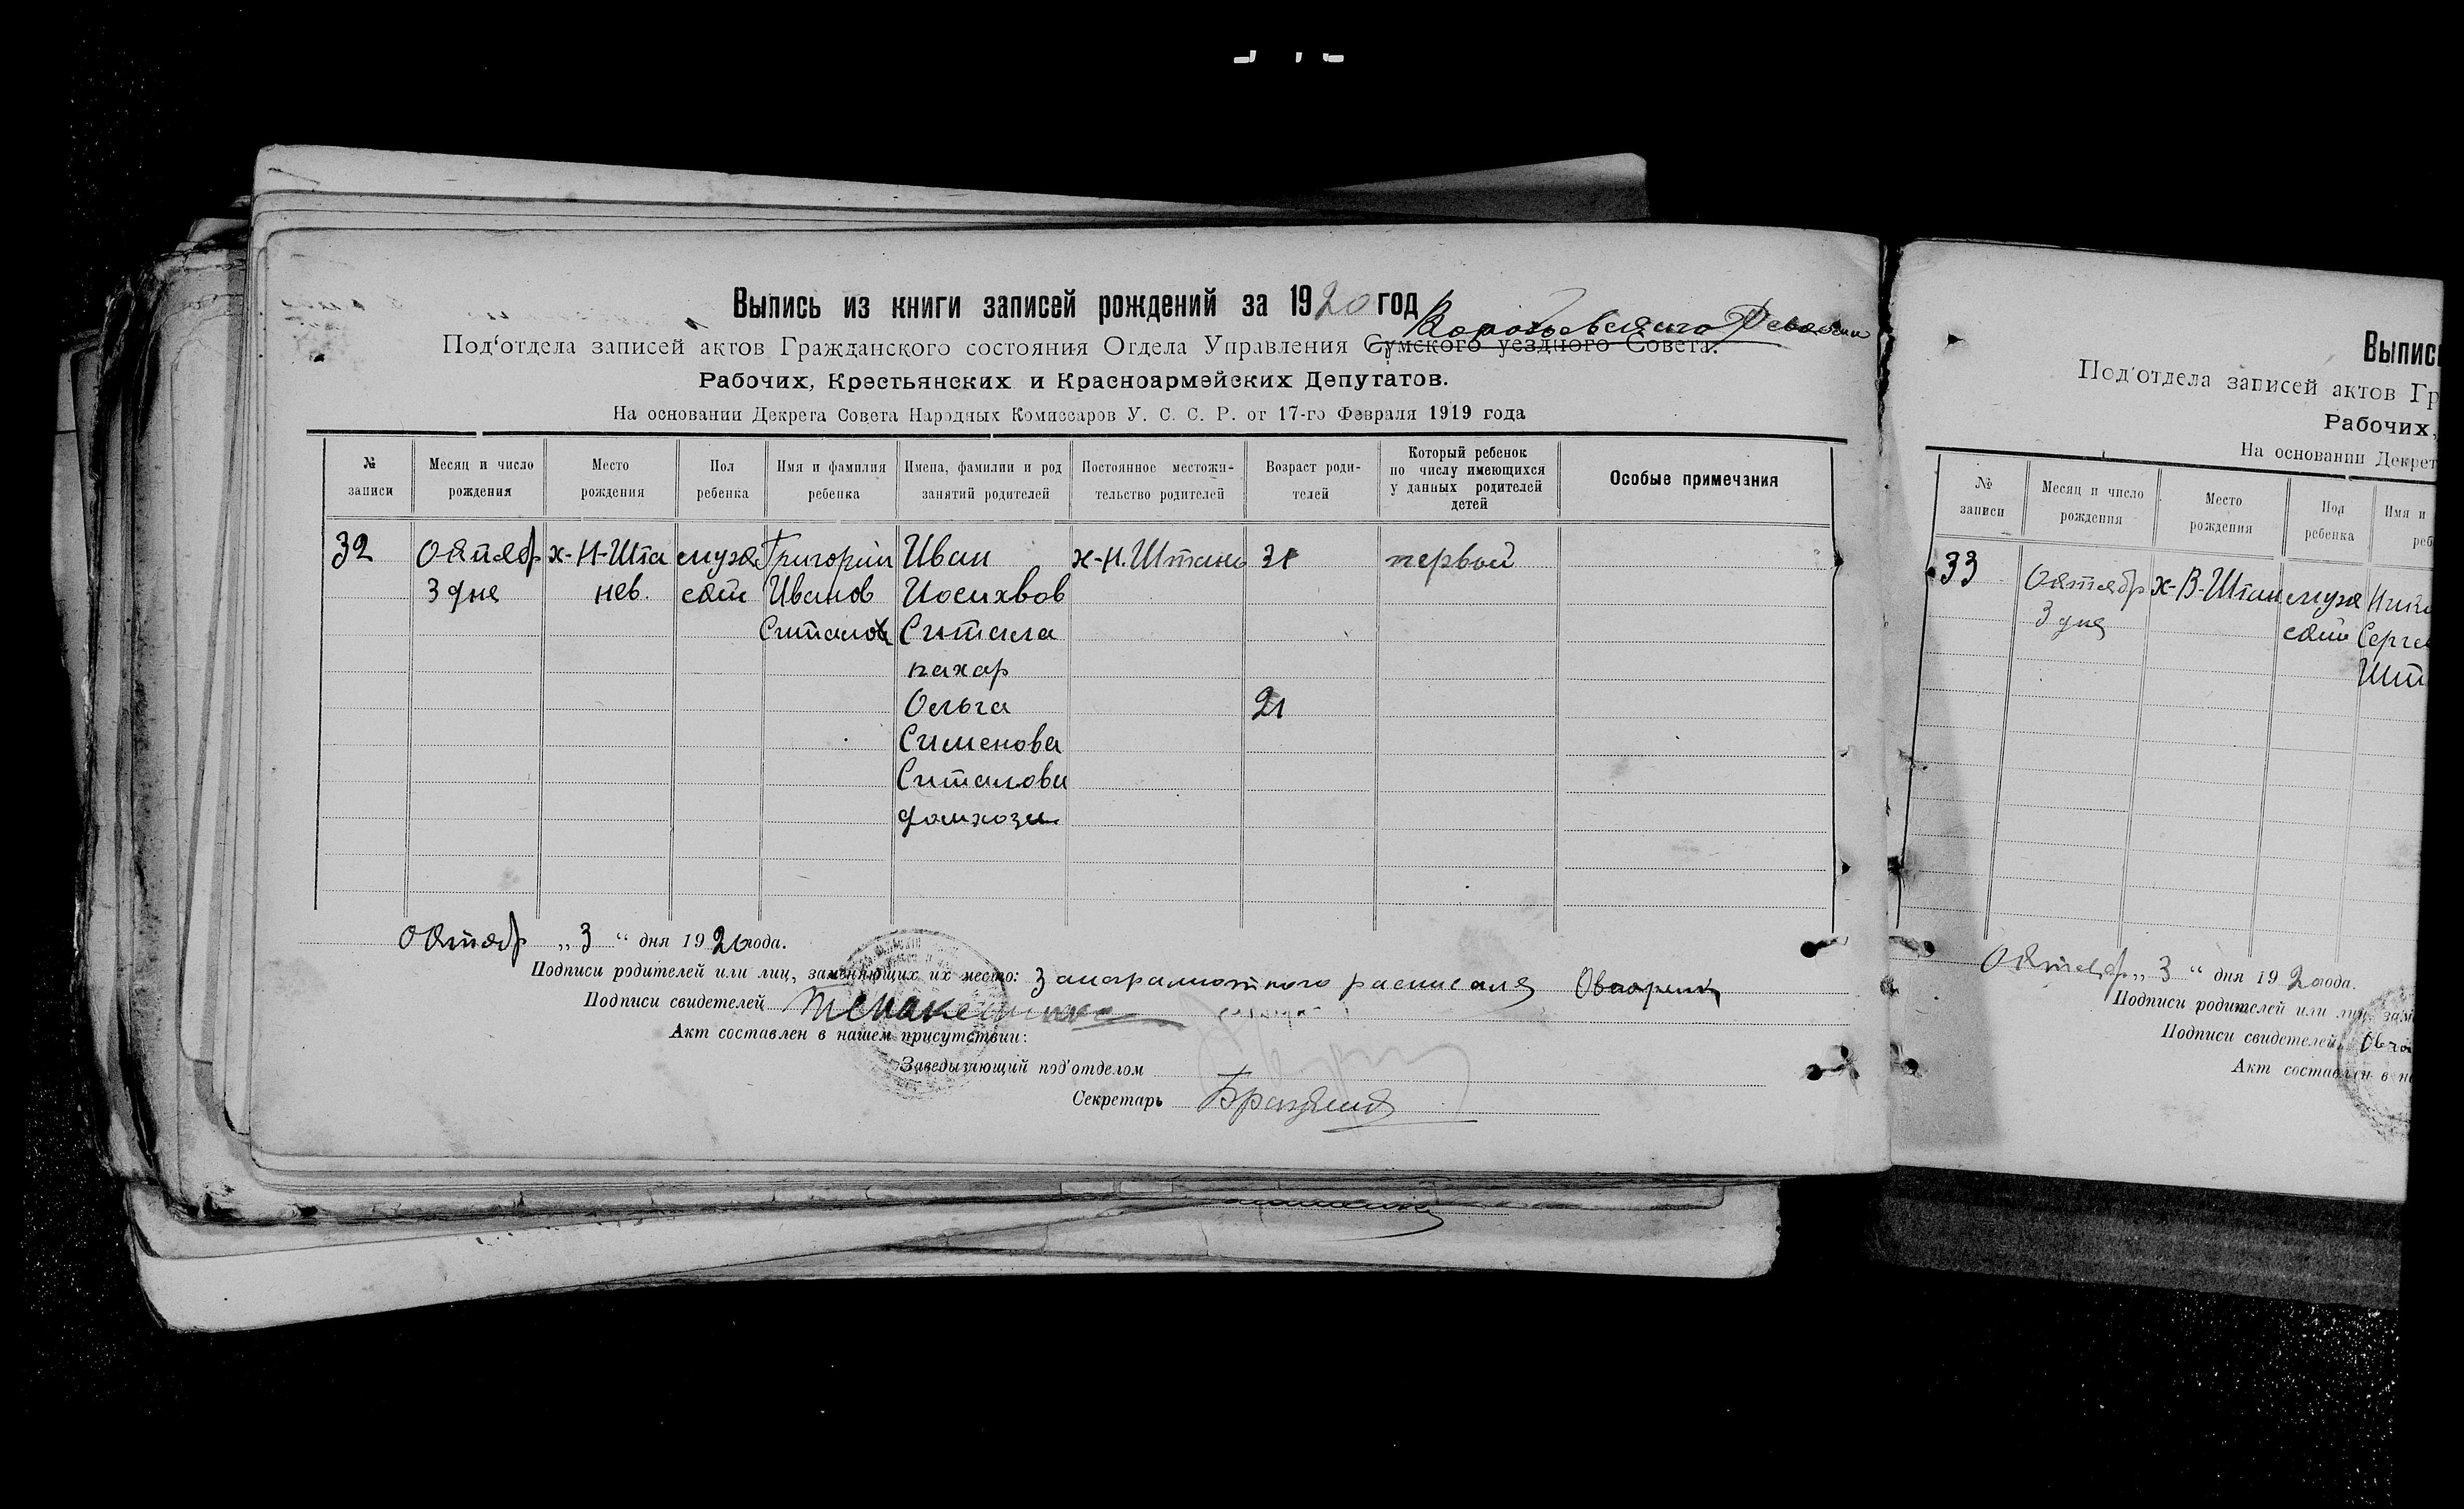 Выпись из книги записей рождений за 1920 год
Под'отдела записей актов Гражданского состояния Отдела Управления Сумского уездного Совета.
Рабочих, Крестьянских и Красноармейских Депутатов.
На основании Декрета Совета Народных Комиссаров У. С. С. Р. от 17-го Февраля 1919 года
№ записи
Месяц и число рождения
Место рождения
Пол ребенка
Имя и фамилия ребенка
Имена, фамилии и род занятий родителей
Постоянное местожительство родителей
Возраст родителей
Который ребенок по числу имеющихся у данных родителей детей
Особые примечания
32 Октябр х-Н-Шта мужя Григорий Иван х-Н. Штано 31 первой
3 дня нев. ской Иванов Иосихвов
Ситало Ситала
пахар
Ольга 21
Сименова
Ситалова
домхозя
Октябр „ 3 “ дня 1920 года.
Подписи родителей или лиц, заменяющих их место: за неграмотного расписался
Подписи свидетелей
Акт составлен в нашем присутствии:
Заведывающий под'отделом
Секретарь
Выпис
Под'отдела записей актов Гр
Рабочих,
На основании Декрет
№ записи
Месяц и число рождения
Место рождения
Пол ребенка
Имя и
реб
33 Октябр х-В-Штан мужя
3 дня ской Серге
Шт
Октябр „ 3 “ дня 1920 года.
Подписи родителей или лиц, зам
Подписи свидетелей
Акт составлен в н